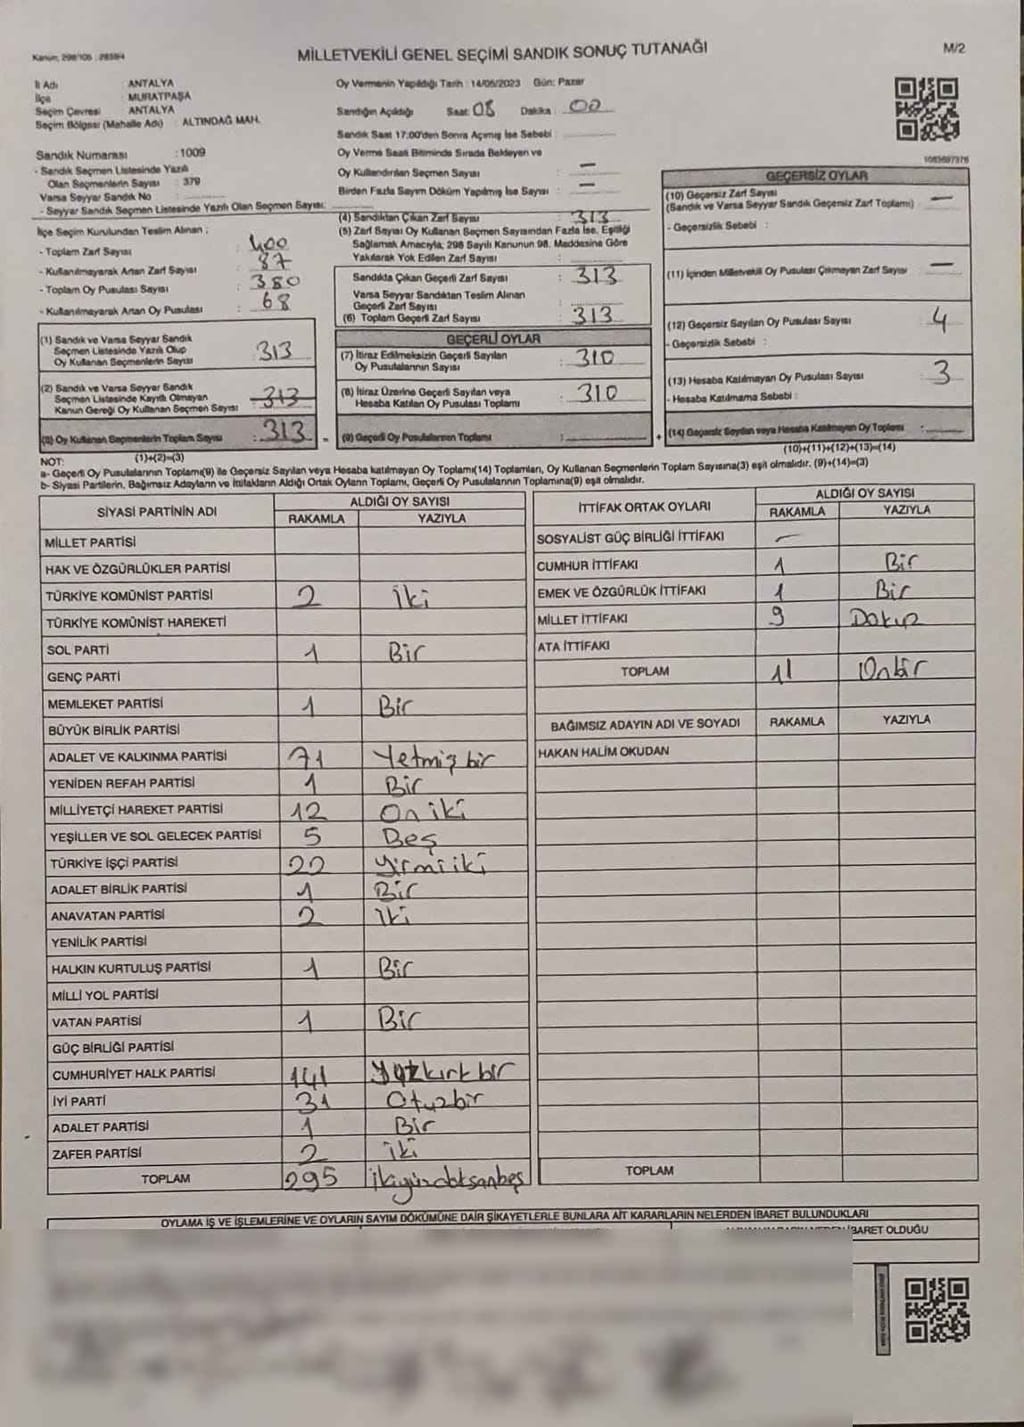 Kanun: 298/105 : 2839/4
MİLLETVEKİLİ GENEL SEÇİMİ SANDIK SONUÇ TUTANAĞI
M/2
İl Adı : ANTALYA
İlçe : MURATPAŞA
Seçim Çevresi : ANTALYA
Seçim Bölgesi (Mahalle Adı) : ALTINDAĞ MAH.
Oy Vermenin Yapıldığı Tarih : 14/05/2023 Gün: Pazar
Sandığın Açıldığı Saat: 08 Dakika : 00
Sandık Saat 17:00'den Sonra Açımış İse Sebebi :
Sandık Numarası : 1009
- Sandık Seçmen Listesinde Yazılı
Olan Seçmenlerin Sayısı : 379
Varsa Seyyar Sandık No :
- Seyyar Sandık Seçmen Listesinde Yazılı Olan Seçmen Sayısı:
Oy Verme Saati Bitiminde Sırada Bekleyen ve
Oy Kullandırılan Seçmen Sayısı : —
Birden Fazla Sayım Döküm Yapılmış İse Sayısı : —
İlçe Seçim Kurulundan Teslim Alınan ;
- Toplam Zarf Sayısı : 400
- Kullanılmayarak Artan Zarf Sayısı : 87
- Toplam Oy Pusulası Sayısı : 380
- Kullanılmayarak Artan Oy Pusulası : 68
(1) Sandık ve Varsa Seyyar Sandık
Seçmen Listesinde Yazılı Olup
Oy Kullanan Seçmenlerin Sayısı : 313
(2) Sandık ve Varsa Seyyar Sandık
Seçmen Listesinde Kayıtlı Olmayan
Kanun Gereği Oy Kullanan Seçmen Sayısı : 313
(3) Oy Kullanan Seçmenlerin Toplam Sayısı : 313
(1)+(2)=(3)
(4) Sandıktan Çıkan Zarf Sayısı : 313
(5) Zarf Sayısı Oy Kullanan Seçmen Sayısından Fazla İse, Eşitliği
Sağlamak Amacıyla; 298 Sayılı Kanunun 98. Maddesine Göre
Yakılarak Yok Edilen Zarf Sayısı :
Sandıkta Çıkan Geçerli Zarf Sayısı : 313
Varsa Seyyar Sandıktan Teslim Alınan
Geçerli Zarf Sayısı :
(6) Toplam Geçerli Zarf Sayısı : 313
GEÇERLİ OYLAR
(7) İtiraz Edilmeksizin Geçerli Sayılan
Oy Pusulalarının Sayısı : 310
(8) İtiraz Üzerine Geçerli Sayılan veya
Hesaba Katılan Oy Pusulası Toplamı : 310
= (9) Geçerli Oy Pusulalarının Toplamı :
1083697376
GEÇERSİZ OYLAR
(10) Geçersiz Zarf Sayısı : —
(Sandık ve Varsa Seyyar Sandık Geçersiz Zarf Toplamı)
- Geçersizlik Sebebi :
(11) İçinden Milletvekili Oy Pusulası Çıkmayan Zarf Sayısı : —
(12) Geçersiz Sayılan Oy Pusulası Sayısı : 4
- Geçersizlik Sebebi :
(13) Hesaba Katılmayan Oy Pusulası Sayısı : 3
- Hesaba Katılmama Sebebi :
+ (14) Geçersiz Sayılan veya Hesaba Katılmayan Oy Toplamı :
(10)+(11)+(12)+(13)=(14)
NOT:
a- Geçerli Oy Pusulalarının Toplamı(9) ile Geçersiz Sayılan veya Hesaba katılmayan Oy Toplamı(14) Toplamları, Oy Kullanan Seçmenlerin Toplam Sayısına(3) eşit olmalıdır. (9)+(14)=(3)
b- Siyasi Partilerin, Bağımsız Adayların ve İttifakların Aldığı Ortak Oyların Toplamı, Geçerli Oy Pusulalarının Toplamına(9) eşit olmalıdır.
SİYASİ PARTİNİN ADI ALDIĞI OY SAYISI
RAKAMLA YAZIYLA
MİLLET PARTİSİ
HAK VE ÖZGÜRLÜKLER PARTİSİ
TÜRKİYE KOMÜNİST PARTİSİ 2 İki
TÜRKİYE KOMÜNİST HAREKETİ
SOL PARTİ 1 Bir
GENÇ PARTİ
MEMLEKET PARTİSİ 1 Bir
BÜYÜK BİRLİK PARTİSİ
ADALET VE KALKINMA PARTİSİ 71 Yetmiş bir
YENİDEN REFAH PARTİSİ 1 Bir
MİLLİYETÇİ HAREKET PARTİSİ 12 On iki
YEŞİLLER VE SOL GELECEK PARTİSİ 5 Beş
TÜRKİYE İŞÇİ PARTİSİ 22 Yirmi iki
ADALET BİRLİK PARTİSİ 1 Bir
ANAVATAN PARTİSİ 2 İki
YENİLİK PARTİSİ
HALKIN KURTULUŞ PARTİSİ 1 Bir
MİLLİ YOL PARTİSİ
VATAN PARTİSİ 1 Bir
GÜÇ BİRLİĞİ PARTİSİ
CUMHURİYET HALK PARTİSİ 141 Yüzkırkbir
İYİ PARTİ 31 Otuzbir
ADALET PARTİSİ 1 Bir
ZAFER PARTİSİ 2 İki
TOPLAM 295 İkiyüzdoksanbeş
İTTİFAK ORTAK OYLARI ALDIĞI OY SAYISI
RAKAMLA YAZIYLA
SOSYALİST GÜÇ BİRLİĞİ İTTİFAKI —
CUMHUR İTTİFAKI 1 Bir
EMEK VE ÖZGÜRLÜK İTTİFAKI 1 Bir
MİLLET İTTİFAKI 9 Dokuz
ATA İTTİFAKI
TOPLAM 11 Onbir
BAĞIMSIZ ADAYIN ADI VE SOYADI RAKAMLA YAZIYLA
HAKAN HALİM OKUDAN
TOPLAM
OYLAMA İŞ VE İŞLEMLERİNE VE OYLARIN SAYIM DÖKÜMÜNE DAİR ŞİKAYETLERLE BUNLARA AİT KARARLARIN NELERDEN İBARET BULUNDUKLARI
İBARET OLDUĞU